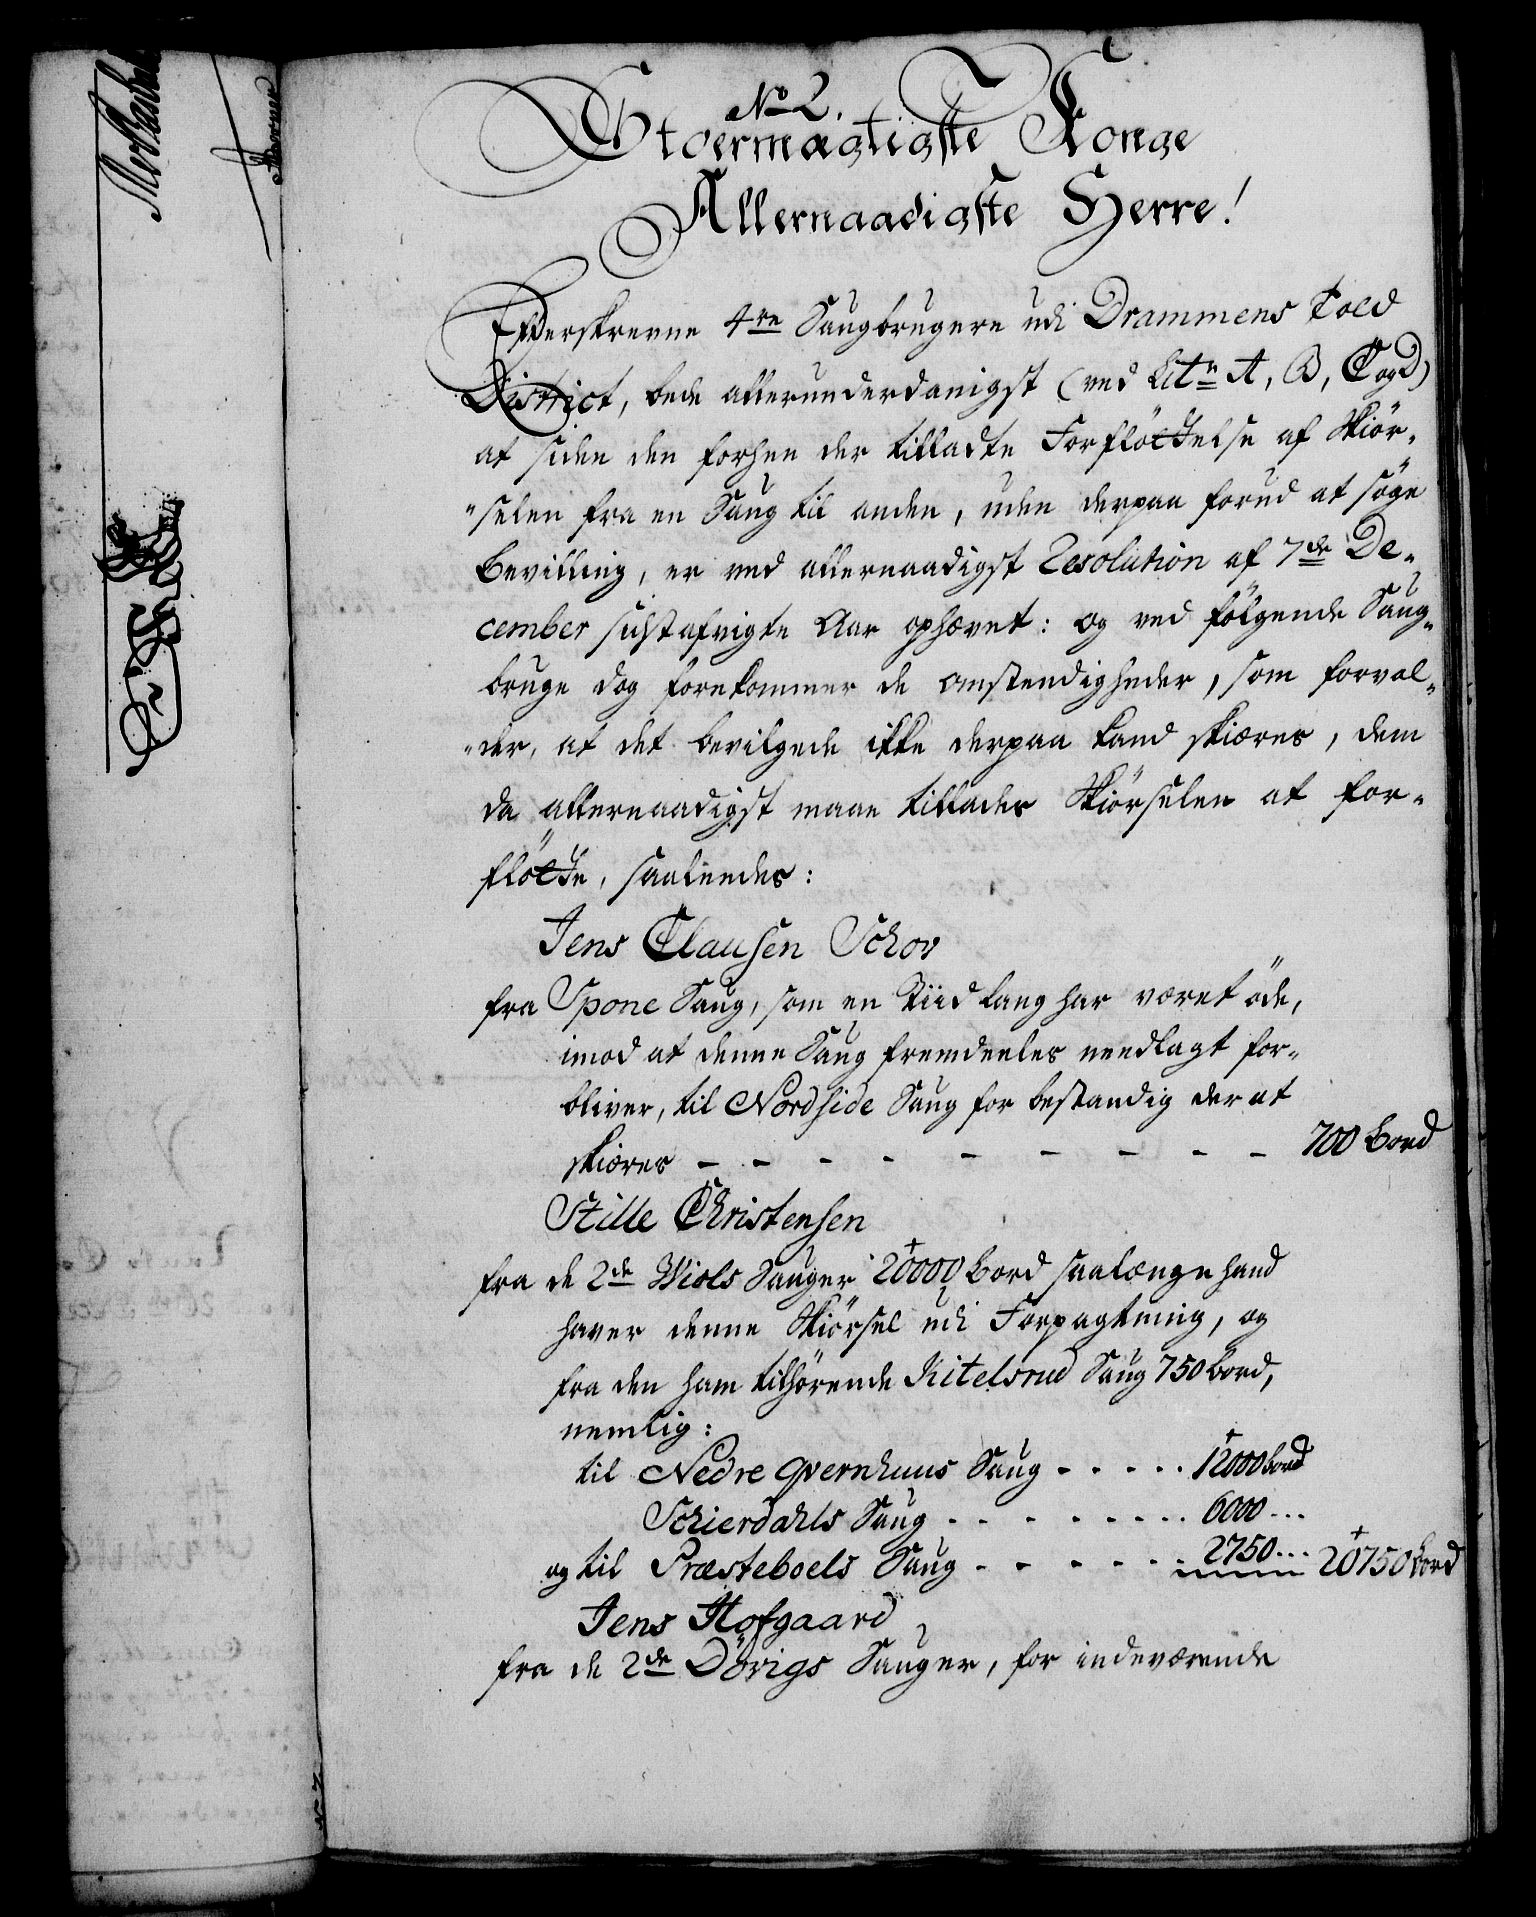 No 2.
Stoermægtigste Konge
Allernaadigste Herre!
Efterskrevne 4re Saugbrugere udi Drammens Told
District, bede allerunderdanigst (ved Litr A, B, C og D)
at siden den forhen der tilladte Forfløttelse af Skiør-
"selen fra en Saug til anden, uden derpaa forud at søge
Bevilling, er ved allernaadigst Resolution af 7de De-
cember sidstafvigte Aar ophævet: og ved følgende Saug-
bruge dog forekommer de omstendigheder, som forvol-
"der, at det bevilgede ikke derpaa kand skiæres, dem
da allernaadigst maae tillades Skiørselen at for-
fløtte, saaleedes:
Jens Clausen Schov
fra Spone Saug, som en Tiid lang har været øde,
imod at denne Saug fremdeeles needlagt for-
bliver, til Nordside Saug for bestandig der at
skiæres - - - - - - - - - 700 Bord
Stille Christensen
fra de 2de Wiols Sauger 20000 Bord saalænge hand
haver denne Skiørsel udi Forpagtning, og
fra den ham tilhørende Kitelsrud Saug 750 Bord,
nemlig:
til Nedre Qvernhuus Saug - - - - - 12000 Bord
Schierdahls Saug - - - - - - - - 6000 ...
og til Præsteboels Saug - - - - - - 2750 ... 20750 Bord
Jens Hofgaard
fra de 2de Dörigs Sauger, for indeværende